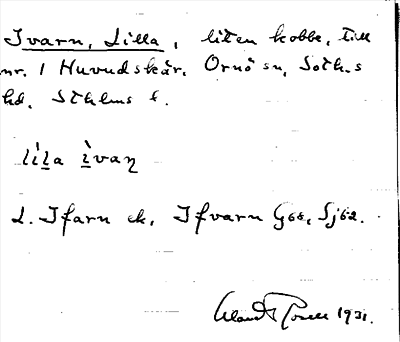 Ivarn, Lilla, liten kobbe, till
nr. 1 Huvudskär. Ornö sn, Soth.s
hd. Sthlms l.
lìl̲a ì̲vaɳ
L. Ifarn ek, Ifvarn G66, Sj62.
1931.